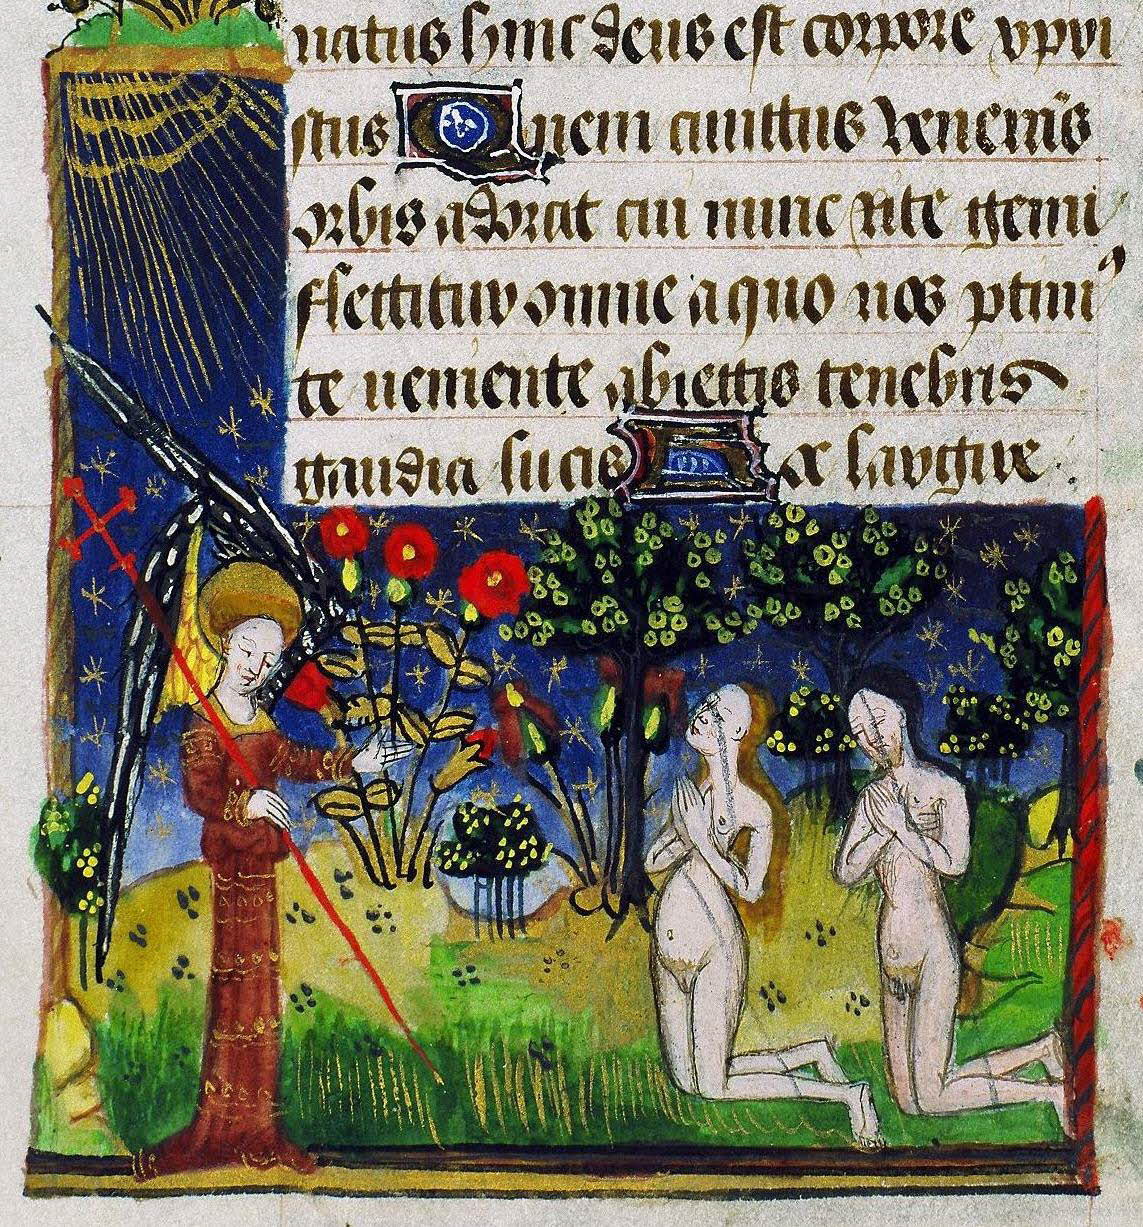 natus hinc deus est corpore xpri
stus Quem cunctus venerans
orbis adorat cui nunc rite genu
flectitur omne a quo nos petim9
te veniente abiectis tenebris
gaudia lucis Lax largire